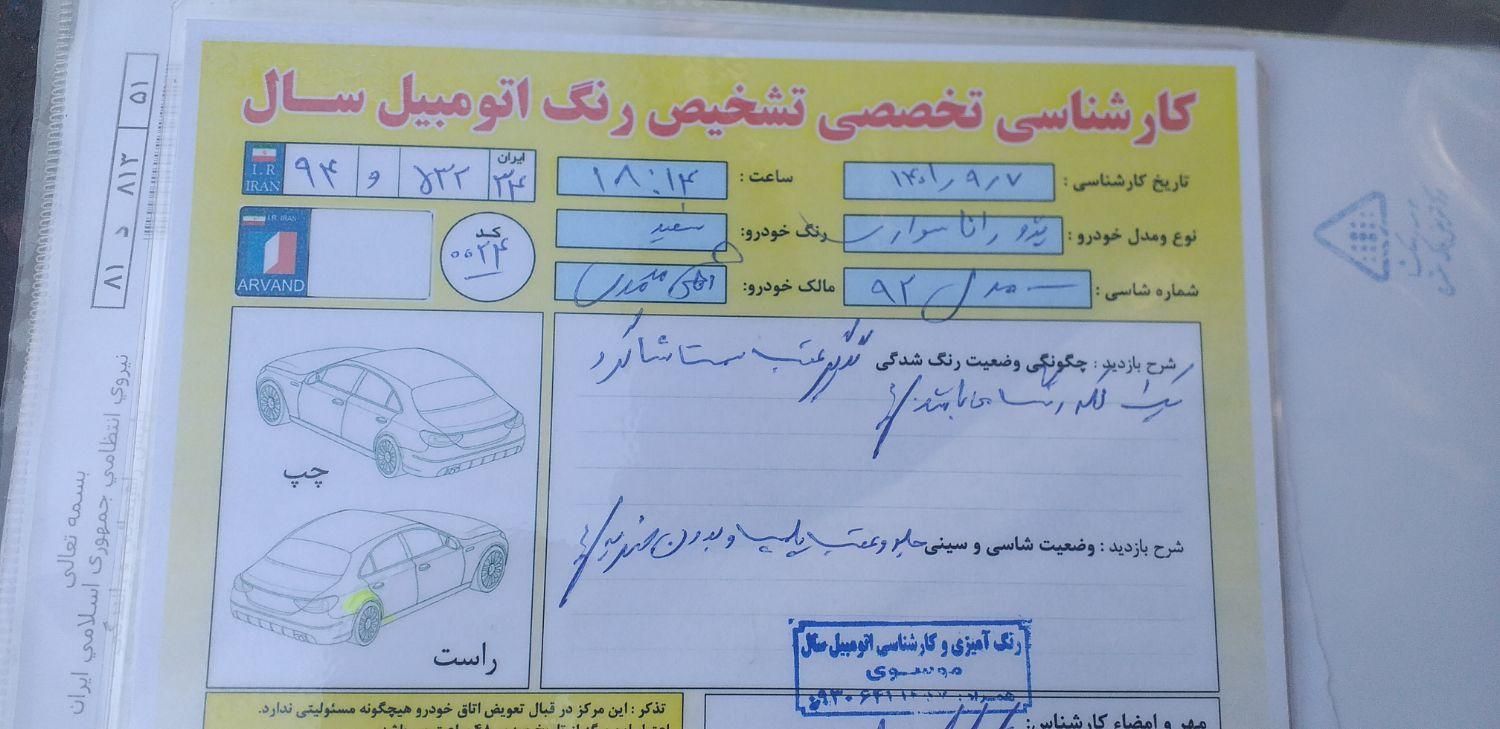 کارشناسی تخصصی تشخیص رنگ اتومبیل سال
تاریخ کارشناسی : ۱۴۰۱٫۹٫۷
ساعت : ۱۸:۱۴
I.R IRAN
۹۴ و ۷۳۲
ایران ۳۴
نوع ومدل خودرو : پژو رانا سواری
رنگ خودرو: سفید
شماره شاسی : مدل ۹۲
مالک خودرو: آقای محمدی
کد ۰۰۲۴
I.R. IRAN
ARVAND
شرح بازدید : چگونگی وضعیت رنگ شدگی گلگیر عقب سمت شاگرد
یک لکه رنگ می باشد
چپ
راست
شرح بازدید : وضعیت شاسی و سینی جلو و عقب پلمپ و بدون ضربه
رنگ آمیزی و کارشناسی اتومبیل سال
موسوی
تذکر : این مرکز در قبال تعویض اتاق خودرو هیچگونه مسئولیتی ندارد.
مهر و امضاء کارشناس:
۵۱
۸۱۳
د
۸۱
بسمه تعالی
نیروی انتظامی جمهوری اسلامی ایران